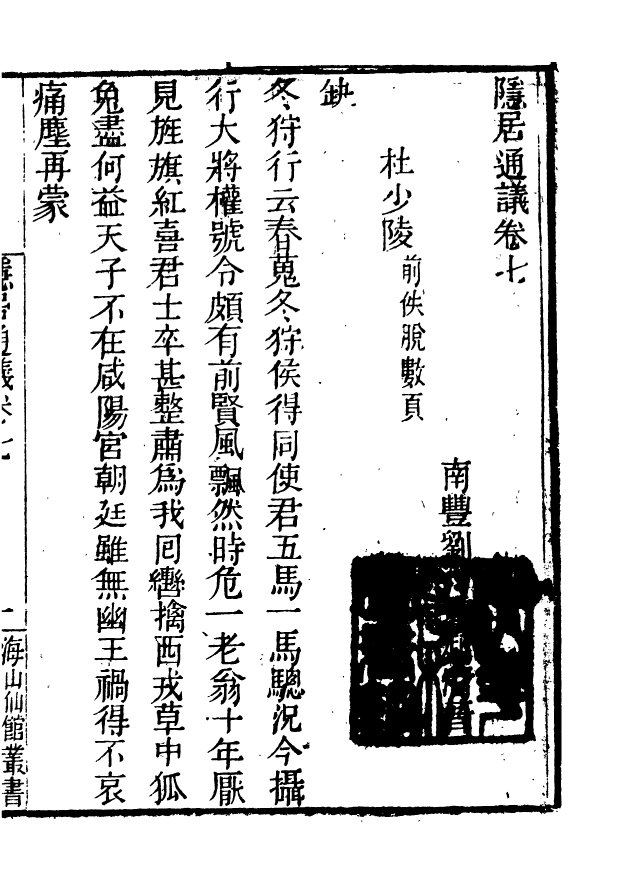 隱居通議卷七
南豐劉
杜少陵前佚脫數頁
缺
冬狩行云春蒐冬狩侯得同使君五馬一馬驄況今攝
行大將權號令頗有前賢風飄然時危一老翁十年厭
見旌旗紅喜君士卒甚整肅爲我囘轡擒西戎草中狐
兔盡何益天子不在咸陽宮朝廷雖無幽王禍得不哀
痛塵再蒙
隱居通議卷七 一 海山仙館叢書